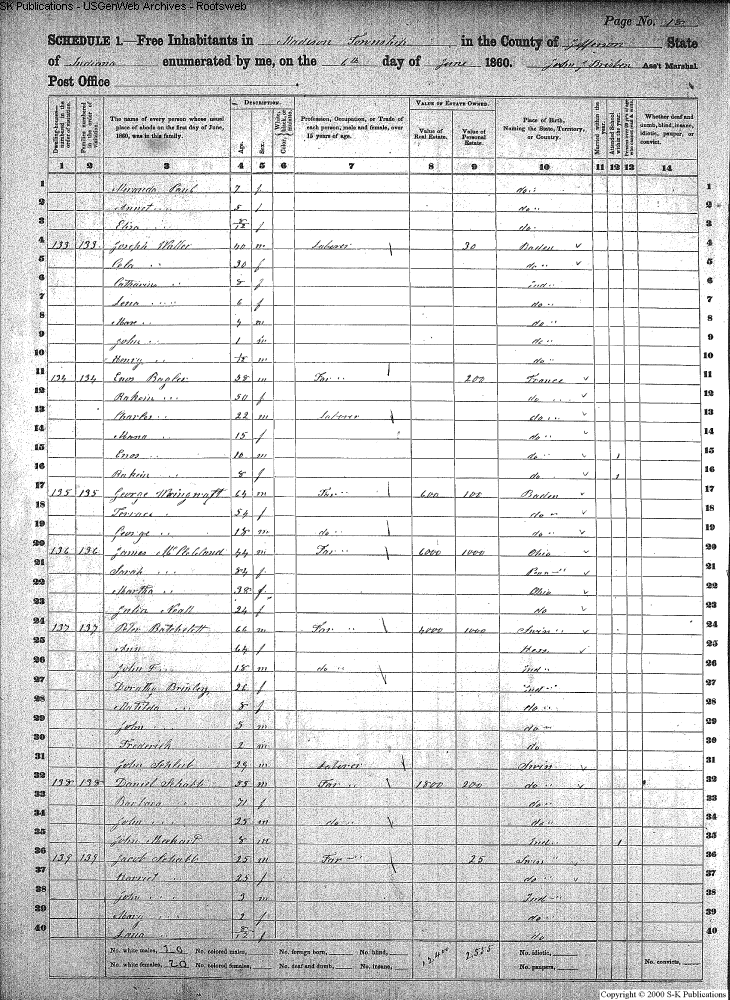 SK Publications - USGenWeb Archives - Rootsweb
Page No.
SCHEDULE 1.—Free Inhabitants in Madison Township in the County of Jefferson State
of Indiana enumerated by me, on the 6th day of June 1860. John J Ass't Marshal
Post Office
Dwelling-houses numbered in the order of visitation.
Families numbered in the order of visitation.
The name of every person whose usual place of abode on the first day of June, 1860, was in this family.
DESCRIPTION.
Age.
Sex.
Color, White, black, or mulatto.
Profession, Occupation, or Trade of each person, male and female, over 15 years of age.
VALUE OF ESTATE OWNED.
Value of Real Estate.
Value of Personal Estate.
Place of Birth, Naming the State, Territory, or Country.
Married within the year.
Attended School within the year.
Whether deaf and dumb, blind, insane, idiotic, pauper, or convict.
1 2 3 4 5 6 7 8 9 10 11 12 13 14
1 Miranda Paul 7 f do 1
2 Annet " 5 f do 2
3 Eliza " f do 3
4 133 133 Joseph Waller 40 m Laborer 30 Baden 4
5 Cela " 30 f do 5
6 Catharina " 8 f Ind 6
7 Lena " 6 f do 7
8 " 4 m do 8
9 John " 1 m do 9
10 Henry " m do 10
11 134 134 Enos Bagler 58 m Far 200 France 11
12 " 50 f do 12
13 Charles " 22 m Laborer do 13
14 " 15 f do 14
15 Enos " 10 m do 1 15
16 " 8 f do 1 16
17 135 135 George 64 m Far 600 100 Baden 17
18 " 54 f do 18
19 George " 18 m do do 19
20 136 136 James McClelland 44 m Far 6000 1000 Ohio 20
21 Sarah " 84 f Penn 21
22 Martha " 38 f Ohio 22
23 Julia Neall 24 f do 23
24 137 137 Peter Batcholett 66 m Far 4000 1000 Swin 24
25 Ann 64 f Hess 25
26 John F " 18 m do Ind 26
27 Dorothy Brinley 26 f Ind 27
28 Matilda " 8 f do 28
29 John " 5 m do 29
30 Frederick " 2 m do 30
31 John Schlieb 29 m Laborer Swin 31
32 138 138 Daniel Schabb 55 m Far 1800 200 do 32
33 Barbara " f do 33
34 John " 25 m do do 34
35 John 8 m Ind 1 35
36 139 139 Jacob Schabb 25 m Far 25 Swin 36
37 Harriet 25 f do 37
38 John " 3 m Ind 38
39 Mary " 2 f do 39
40 Lana f do 40
No. white males, 20 No. colored males, No. foreign born, No. blind, 12,400 2,555 No. idiotic,
No. white females, 20 No. colored females, No. deaf and dumb, No. insane, No. paupers, No. convicts,
Copyright © 2000 S-K Publications